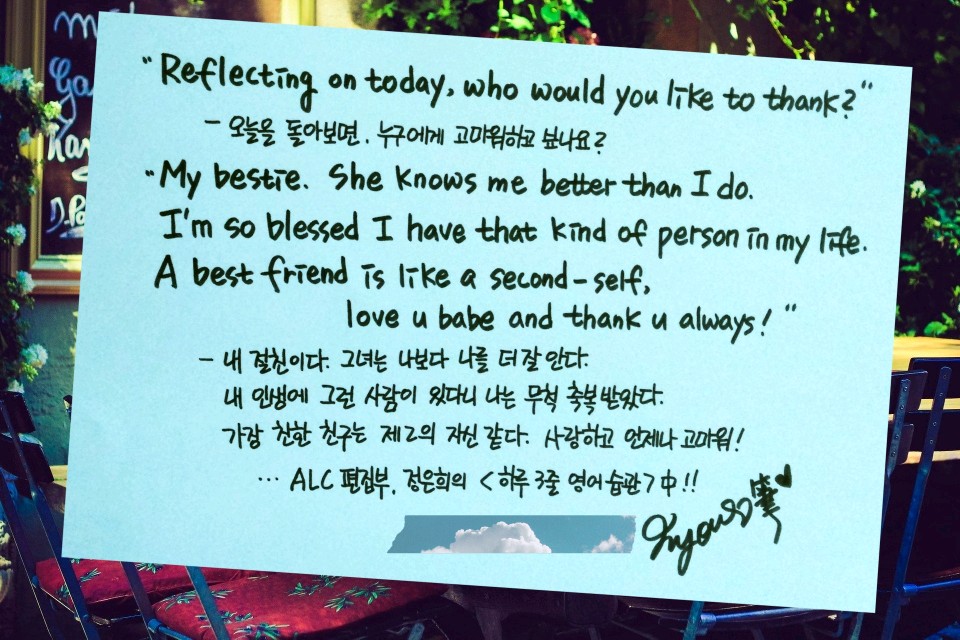 “Reflecting on today, who would you like to thank?”
- 오늘을 돌아보면, 누구에게 고마워하고 싶나요?
“My bestie. She knows me better than I do.
I'm so blessed I have that kind of person in my life.
A best friend is like a second-self,
love u babe and thank u always!”
- 내 절친이다. 그녀는 나보다 나를 더 잘 안다.
내 인생에 그런 사람이 있다니 나는 무척 축복받았다.
가장 친한 친구는 제2의 자신 같다. 사랑하고 언제나 고마워!
... ALC 편집부, 정은희의 <하루 3줄 영어습관> 中!!